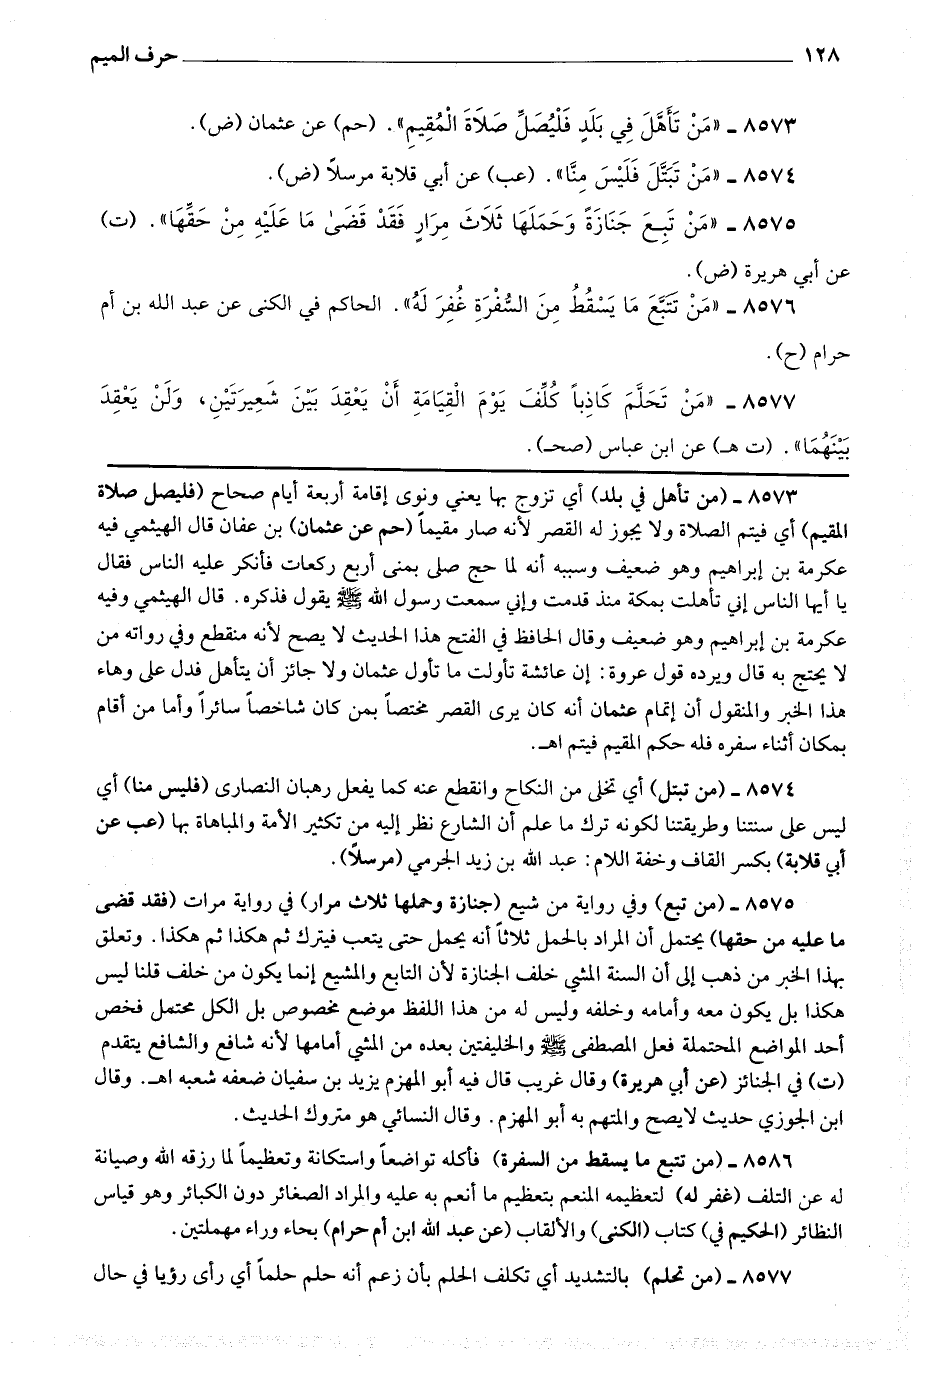 ١٢٨ ــــــــــــــــــــــــــــــــــــــــــــــــــــــ حرف الميم
٨٥٧٣ ـ «مَنْ تَأَهَّلَ فِي بَلَدٍ فَلْيُصَلِّ صَلَاةَ الْمُقِيمِ». (حم) عن عثمان (ض).
٨٥٧٤ ـ «مَنْ تَبَتَّلَ فَلَيْسَ مِنَّا». (عب) عن أبي قلابة مرسلاً (ض).
٨٥٧٥ ـ «مَنْ تَبِعَ جَنَازَةً وَحَمَلَهَا ثَلَاثَ مِرَارٍ فَقَدْ قَضَىٰ مَا عَلَيْهِ مِنْ حَقِّهَا». (ت)
عن أبي هريرة (ض).
٨٥٧٦ ـ «مَنْ تَتَبَّعَ مَا يَسْقُطُ مِنَ السُّفْرَةِ غُفِرَ لَهُ». الحاكم في الكنى عن عبد الله بن أم
حرام (ح).
٨٥٧٧ ـ «مَنْ تَحَلَّمَ كَاذِباً كُلِّفَ يَوْمَ الْقِيَامَةِ أَنْ يَعْقِدَ بَيْنَ شَعِيرَتَيْنِ، وَلَنْ يَعْقِدَ
بَيْنَهُمَا». (ت هـ) عن ابن عباس (صحـ).
٨٥٧٣ ـ (من تأهل في بلد) أي تزوج بها يعني ونوى إقامة أربعة أيام صحاح (فليصل صلاة
المقيم) أي فيتم الصلاة ولا يجوز له القصر لأنه صار مقيماً (حم عن عثمان) بن عفان قال الهيثمي فيه
عكرمة بن إبراهيم وهو ضعيف وسببه أنه لما حج صلى بمنى أربع ركعات فأنكر عليه الناس فقال
يا أيها الناس إني تأهلت بمكة منذ قدمت وإني سمعت رسول الله ﷺ يقول فذكره. قال الهيثمي وفيه
عكرمة بن إبراهيم وهو ضعيف وقال الحافظ في الفتح هذا الحديث لا يصح لأنه منقطع وفي رواته من
لا يحتج به قال ويرده قول عروة: إن عائشة تأولت ما تأول عثمان ولا جائز أن يتأهل فدل على وهاء
هذا الخبر والمنقول أن إتمام عثمان أنه كان يرى القصر مختصاً بمن كان شاخصاً سائراً وأما من أقام
بمكان أثناء سفره فله حكم المقيم فيتم اهـ.
٨٥٧٤ ـ (من تبتل) أي تخلى من النكاح وانقطع عنه كما يفعل رهبان النصارى (فليس منا) أي
ليس على سنتنا وطريقتنا لكونه ترك ما علم أن الشارع نظر إليه من تكثير الأمة والمباهاة بها (عب عن
أبي قلابة) بكسر القاف وخفة اللام: عبد الله بن زيد الجرمي (مرسلاً).
٨٥٧٥ ـ (من تبع) وفي رواية من شيع (جنازة وحملها ثلاث مرار) في رواية مرات (فقد قضى
ما عليه من حقها) يحتمل أن المراد بالحمل ثلاثاً أنه يحمل حتى يتعب فيترك ثم هكذا ثم هكذا. وتعلق
بهذا الخبر من ذهب إلى أن السنة المشي خلف الجنازة لأن التابع والمشيع إنما يكون من خلف قلنا ليس
هكذا بل يكون معه وأمامه وخلفه وليس له من هذا اللفظ موضع مخصوص بل الكل محتمل فخص
أحد المواضع المحتملة فعل المصطفى ﷺ والخليفتين بعده من المشي أمامها لأنه شافع والشافع يتقدم
(ت) في الجنائز (عن أبي هريرة) وقال غريب قال فيه أبو المهزم يزيد بن سفيان ضعفه شعبه اهـ. وقال
ابن الجوزي حديث لايصح والمتهم به أبو المهزم. وقال النسائي هو متروك الحديث.
٨٥٨٦ ـ (من تتبع ما يسقط من السفرة) فأكله تواضعاً واستكانة وتعظيماً لما رزقه الله وصيانة
له عن التلف (غفر له) لتعظيمه المنعم بتعظيم ما أنعم به عليه والمراد الصغائر دون الكبائر وهو قياس
النظائر (الحكيم في) كتاب (الكنى) والألقاب (عن عبد الله ابن أم حرام) بحاء وراء مهملتين.
٨٥٧٧ ـ (من تحلم) بالتشديد أي تكلف الحلم بأن زعم أنه حلم حلماً أي رأى رؤيا في حال